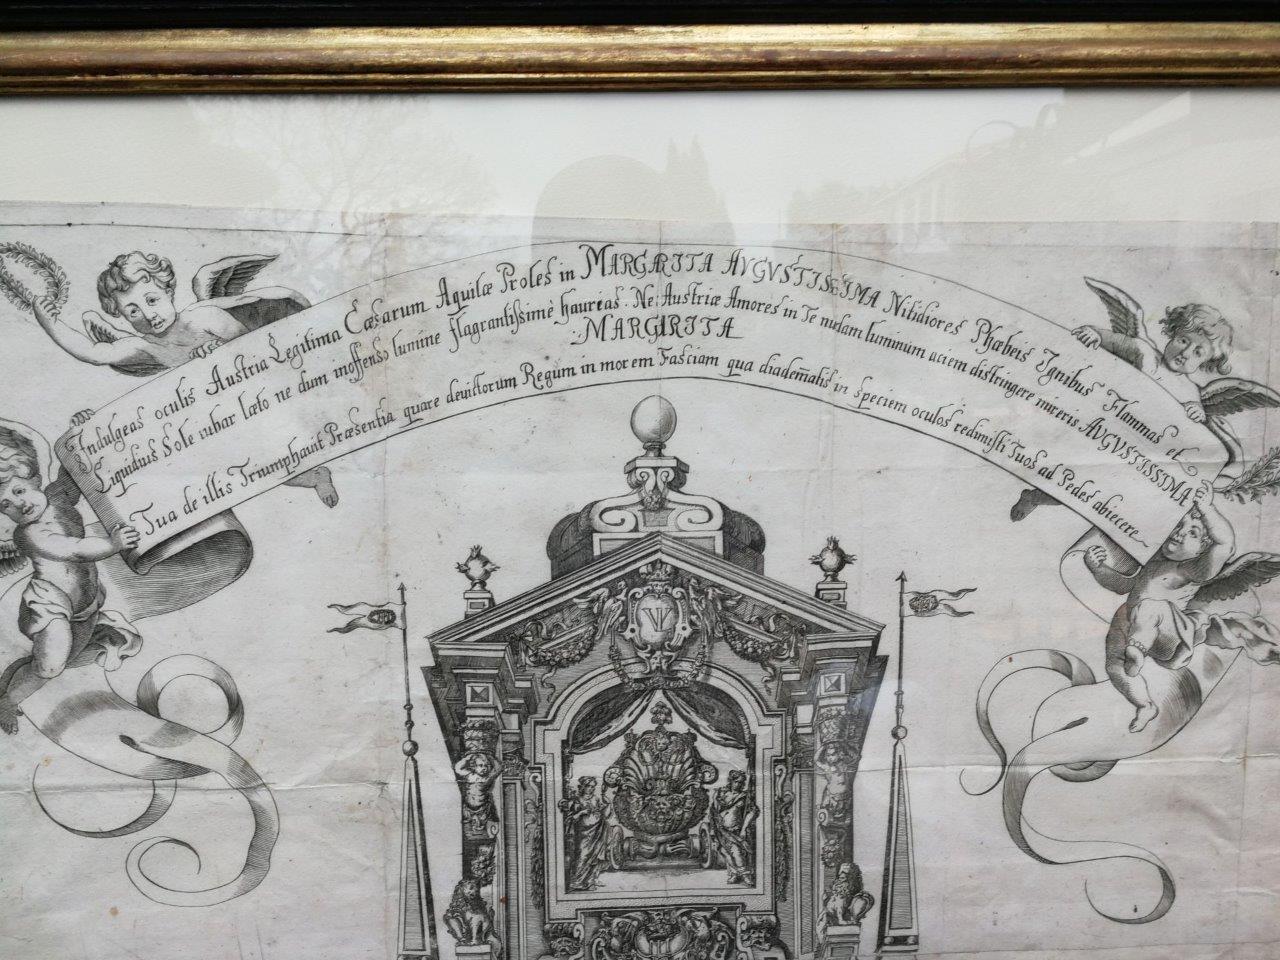 Indulgeas oculis Austria Legitima Cæsarum Aquilæ Proles in MARGARITA AVGVSTISSIMA Nitidiores Phæbeis Ignibus Flammas et
Liquidius Sole iubar læto ne dum inoffenso lumine flagrantissimè haurias. Ne Austriæ Amores in Te nudam luminum aciem distringere mireris AVGVSTISSIMA MARGRITA
Tua de illis Triumphavit Præsentis quare devictorum Regium in morem Fasciam, qua diadematis in speciem oculos redimisti Tuos ad Pedes abiecere.